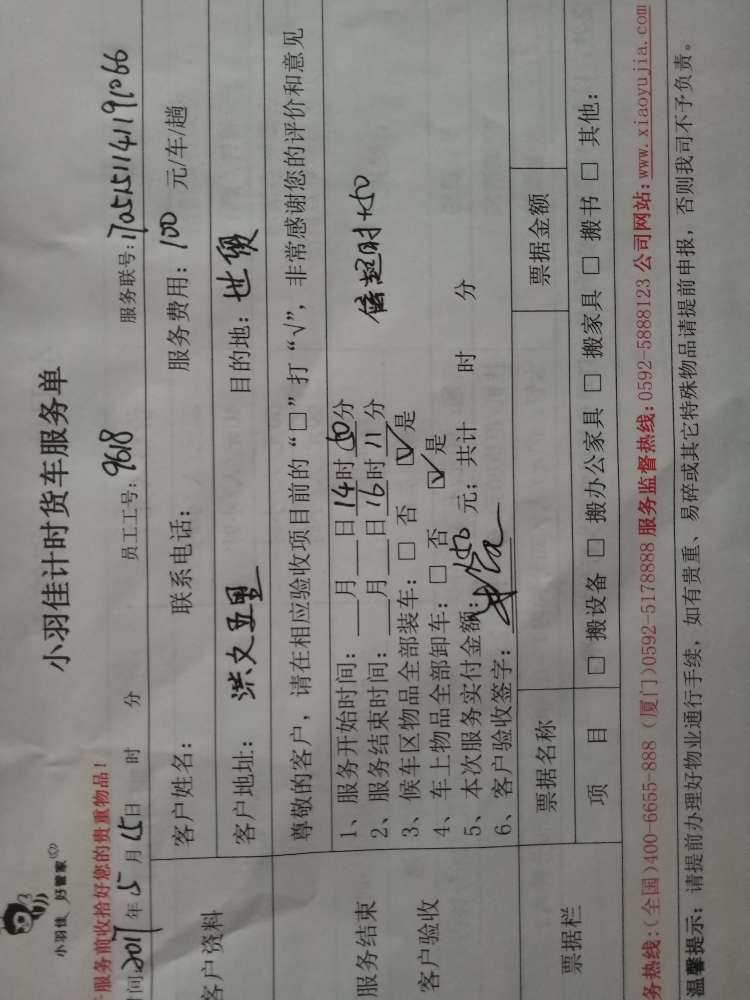 小羽佳 好管家
小羽佳计时货车服务单
服务前收拾好您的贵重物品！
员工工号：9618 服务联号：17a5151141191066
间2017年5月15日 时 分
客户资料
客户姓名： 联系电话： 服务费用：100 元/车/趟
客户地址：洪文五里 目的地：世贸
服务结束
客户验收
尊敬的客户，请在相应验收项目前的“□”打“√”，非常感谢您的评价和意见
1、服务开始时间：＿月＿日14时00分
2、服务结束时间：＿月＿日16时11分
3、候车区物品全部装车：□ 否 ☑是
4、车上物品全部卸车：□ 否 ☑是
超时+50
5、本次服务实付金额：150元；共计 时 分
6、客户验收签字：
票据栏
票据名称 票据金额
项 目 □ 搬设备 □ 搬办公家具 □ 搬家具 □ 搬书 □ 其他：
务热线：（全国）400-6655-888 （厦门）0592-5178888 服务监督热线：0592-5888123 公司网站：www.xiaoyujia.com
温馨提示：请提前办理好物业通行手续，如有贵重、易碎或其它特殊物品请提前申报，否则我司不予负责。